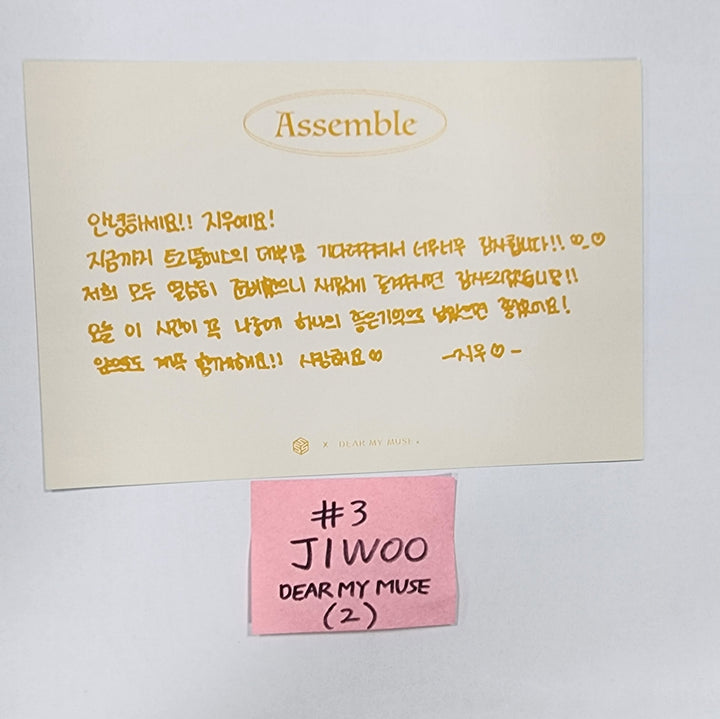 Assemble
안녕하세요!! 지우예요!
지금까지 트리플에스의 데뷔를 기다려주셔서 너무너무 감사합니다!! ♡_♡
저희 모두 열심히 준비했으니 재밌게 즐겨주시면 감사드리겠습니당!!
오늘 이 시간이 꼭 나중에 하나의 좋은기억으로 남았으면 좋겠어요!
앞으로도 계속 함께해요!! 사랑해요♡ -지우♡-
x DEAR MY MUSE.
#3
JIWOO
DEAR MY MUSE
(2)